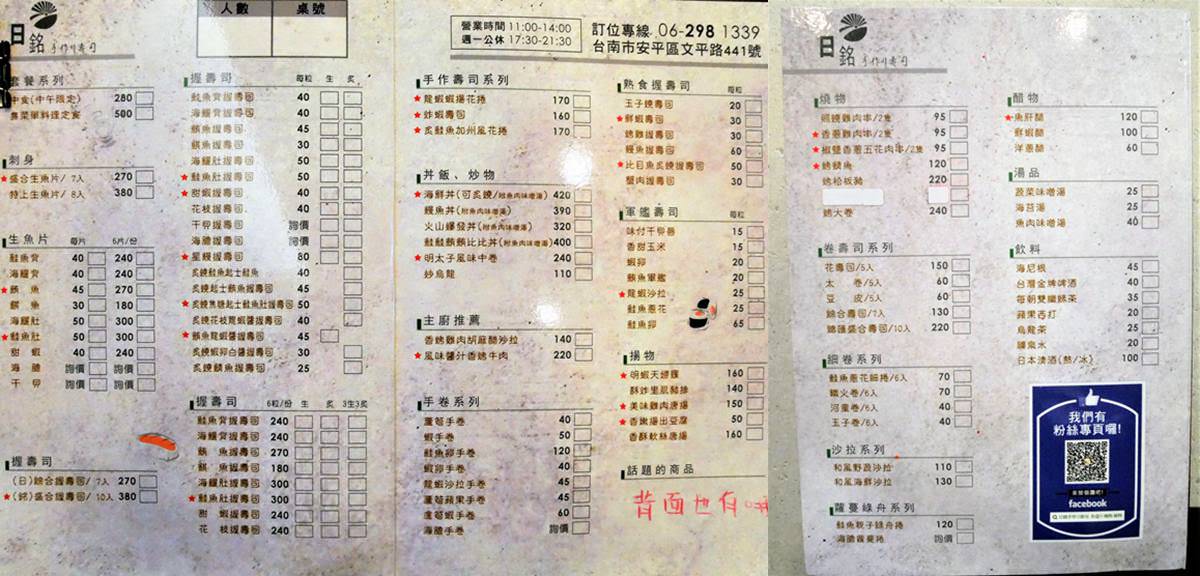 日銘 手作り壽司
人數 桌號
營業時間 11:00-14:00
週一公休 17:30-21:30
訂位專線 06-298 1339
台南市安平區文平路441號
套餐系列
中食(中午限定) 280
無菜單料理定食 500
刺身
★盛合生魚片/7入 270
特上生魚片/8入 380
生魚片 每片 6片/份
鮭魚背 40 240
海鱺背 40 240
★鮪 魚 45 270
旗 魚 30 180
海鱺肚 50 300
★鮭魚肚 50 300
甜 蝦 40 240
海 膽 詢價 詢價
干 貝 詢價 詢價
握壽司
(日)綜合握壽司/7入 270
★(銘)盛合握壽司/10入 380
握壽司 每粒 生 炙
鮭魚背握壽司 40
海鱺背握壽司 40
鮪魚握壽司 45
旗魚握壽司 30
海鱺肚握壽司 50
★鮭魚肚握壽司 50
★甜蝦握壽司 40
花枝握壽司 40
干貝握壽司 詢價
海膽握壽司 詢價
★星鰻握壽司 80
炙燒鮭魚起士鮭魚 40
炙燒起士鮪魚握壽司 45
★炙燒焦糖起士鮭魚肚握壽司 50
炙燒花枝龍蝦醬握壽司 40
★鮪魚龍蝦醬握壽司 45
炙燒蝦卵白醬握壽司 30
炙燒鯖魚握壽司 25
握壽司 6粒/份 生 炙 3生3炙
鮭魚背握壽司 240
海鱺背握壽司 240
鮪 魚握壽司 270
旗 魚握壽司 180
海鱺肚握壽司 300
★鮭魚肚握壽司 300
甜 蝦握壽司 240
花 枝握壽司 240
手作壽司系列
★龍蝦蝦揚花捲 170
★炸蝦壽司 160
★炙鮭魚加州風花捲 170
丼飯、炒物
★海鮮丼(可炙燒/附魚肉味噌湯) 420
鰻魚丼(附魚肉味噌湯) 390
火山爆發丼(附魚肉味噌湯) 320
鮭鮭鮪鮪比比丼(附魚肉味噌湯) 400
★明太子風味中卷 240
炒烏龍 110
主廚推薦
香燒雞肉胡麻醋沙拉 140
★風味醬汁香燒牛肉 220
手卷系列
蘆筍手卷 40
蝦手卷 50
鮭魚卵手卷 120
蝦卵手卷 40
龍蝦沙拉手卷 45
蘆筍蘋果手卷 45
蘆筍蝦手卷 60
海膽手卷 詢價
熟食握壽司 每粒
玉子燒壽司 20
★鮮蝦壽司 30
燒雞握壽司 30
鰻魚握壽司 60
★比目魚炙燒握壽司 50
蟹肉握壽司 30
軍艦壽司 每粒
味付干貝唇 15
香甜玉米 15
蝦卵 20
鮪魚軍艦 20
★龍蝦沙拉 25
鮭魚蔥花 25
鮭魚卵 65
揚物
★明蝦天婦羅 160
酥炒里肌豬排 140
★美味雞肉唐揚 150
★香嫩揚出豆腐 50
香酥軟絲唐揚 160
話題的商品
背面也有
日銘 手作り壽司
燒物
照燒雞肉串/2隻 95
★香蔥雞肉串/2隻 95
★椒鹽香蔥五花肉串/2隻 95
★燒鯖魚 120
燒松板豬 220
燒大卷 240
卷壽司系列
花壽司/5入 150
太 卷/5入 60
豆 皮/5入 60
綜合壽司/7入 130
總匯盛合壽司/10入 220
細卷系列
鮭魚蔥花細捲/6入 70
鐵火卷/6入 70
河童卷/6入 40
玉子卷/6入 40
沙拉系列
和風野蔬沙拉 110
和風海鮮沙拉 130
蘿蔓綠舟系列
鮭魚親子綠舟捲 120
海膽蘿蔓捲 詢價
醋物
★魚肝醋 120
鮮蝦醋 100
洋蔥醋 60
湯品
蔬菜味噌湯 25
海苔湯 25
魚肉味噌湯 40
飲料
海尼根 45
台灣金牌啤酒 40
每朝雙纖綠茶 35
蘋果西打 20
烏龍茶 25
礦泉水 20
日本清酒(熱/冰) 100
我們有
粉絲專頁囉!
來按個讚吧!
facebook